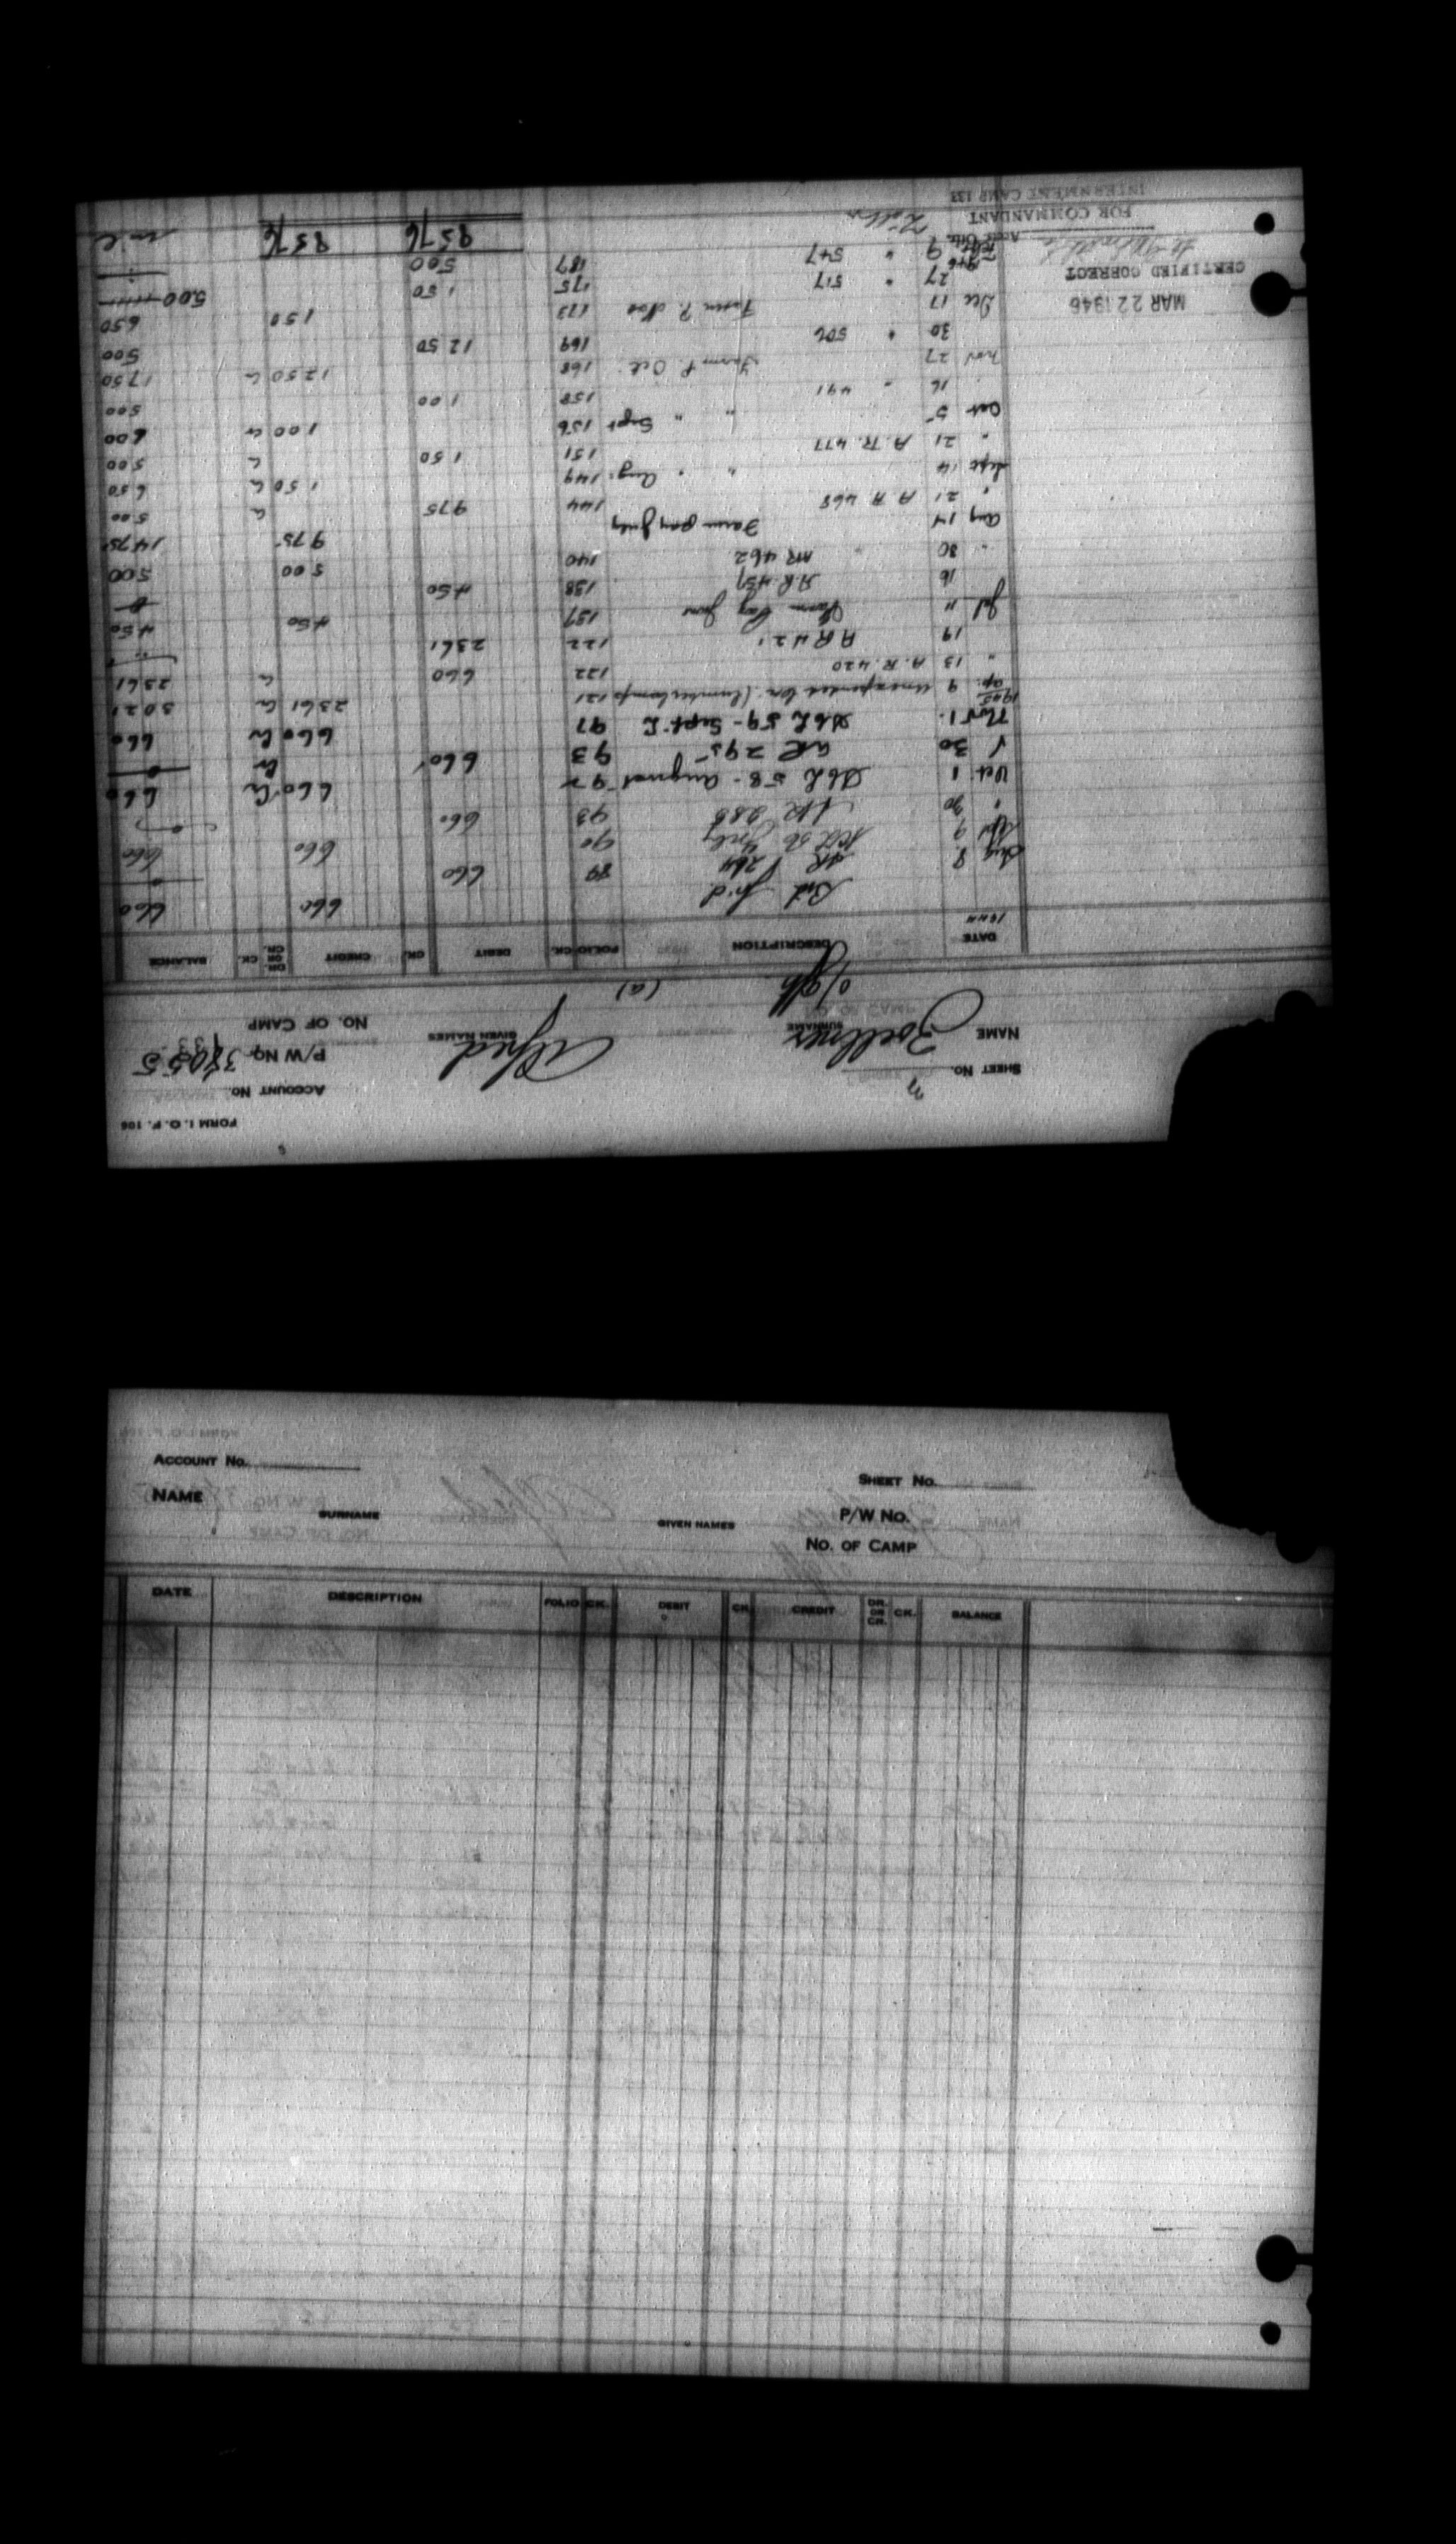 FORM I.O.F. 106
ACCOUNT No.
SHEET No. 3
P/W No. 38055
NAME Zoellner Alfred
SURNAME GIVEN NAMES
NO. OF CAMP 133
(a)
DATE DESCRIPTION FOLIO CK. DEBIT CK. CREDIT DR. OR CR. CK. BALANCE
1944
Bal f'd 660 660
Aug 8 AR 264 89 660
9 56 July 90 660 660
" 30 AR 288 93 660
Oct 1 58 - August 92 660 Cr 660
30 AR 295 93 660 Cr
Nov 1 59 - Sept. 97 660 Cr 660
1945
Ap. 9 121 2361 Cr 3021
" 13 A.R. 420 122 660 Cr 2361
19 AR 421 122 2361
Jul 11 Farm Pay June 137 450 450
16 A.R. 459 138 450
" 30 AR 462 140 500 500
Aug 14 Farm pay July 975 1475
" 21 A R 468 144 975 Cr 500
Sept 14 " " Aug. 149 150 Cr 650
" 21 A.R. 477 151 150 Cr 500
Oct 5 " " Sept 156 100 Cr 600
16 " 491 158 100 500
Nov 27 Farm P. Oct. 168 1250 Cr 1750
30 " 506 169 1250 500
Dec 17 Farm P. Nov 173 150 650
27 " 517 175 150 500
1946
Feb 9 " 547 187 500
9576 9576 nil
MAR 22 1946
CERTIFIED CORRECT
Accts Offr.
FOR COMMANDANT
INTERNMENT CAMP 133
ACCOUNT No.
SHEET No.
NAME
SURNAME GIVEN NAMES
P/W No.
No. OF CAMP
DATE DESCRIPTION FOLIO CK. DEBIT CK. CREDIT DR. OR CR. CK. BALANCE